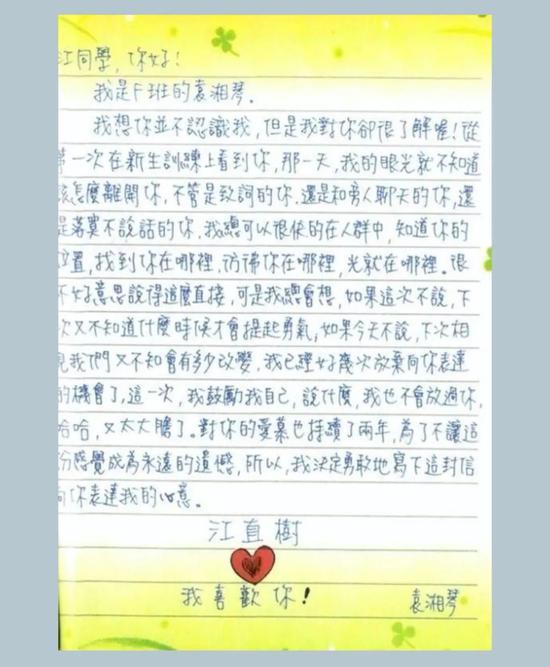 江同學,你好!
我是F班的袁湘琴.
我想你並不認識我,但是我對你卻很了解喔!從
第一次在新生訓練上看到你,那一天,我的眼光就不知道
該怎麼離開你,不管是致詞的你.還是和旁人聊天的你,還
是落寞不說話的你.我總可以很快的在人群中,知道你的
位置,找到你在哪裡.彷彿你在哪裡,光就在哪裡。很
不好意思說得這麼直接,可是我總會想,如果這次不說,下
次又不知道什麼時候才會提起勇氣,如果今天不說,下次相
見我們又不知會有多少改變,我已經好幾次放棄向你表達
的機會了,這一次,我鼓勵我自己,說什麼,我也不會放過你,
哈哈,又太大膽了。對你的愛慕也持續了兩年,為了不讓這
份感覺成為永遠的遺憾,所以,我決定勇敢地寫下這封信
向你表達我的心意。
江直樹
我喜歡你!
袁湘琴